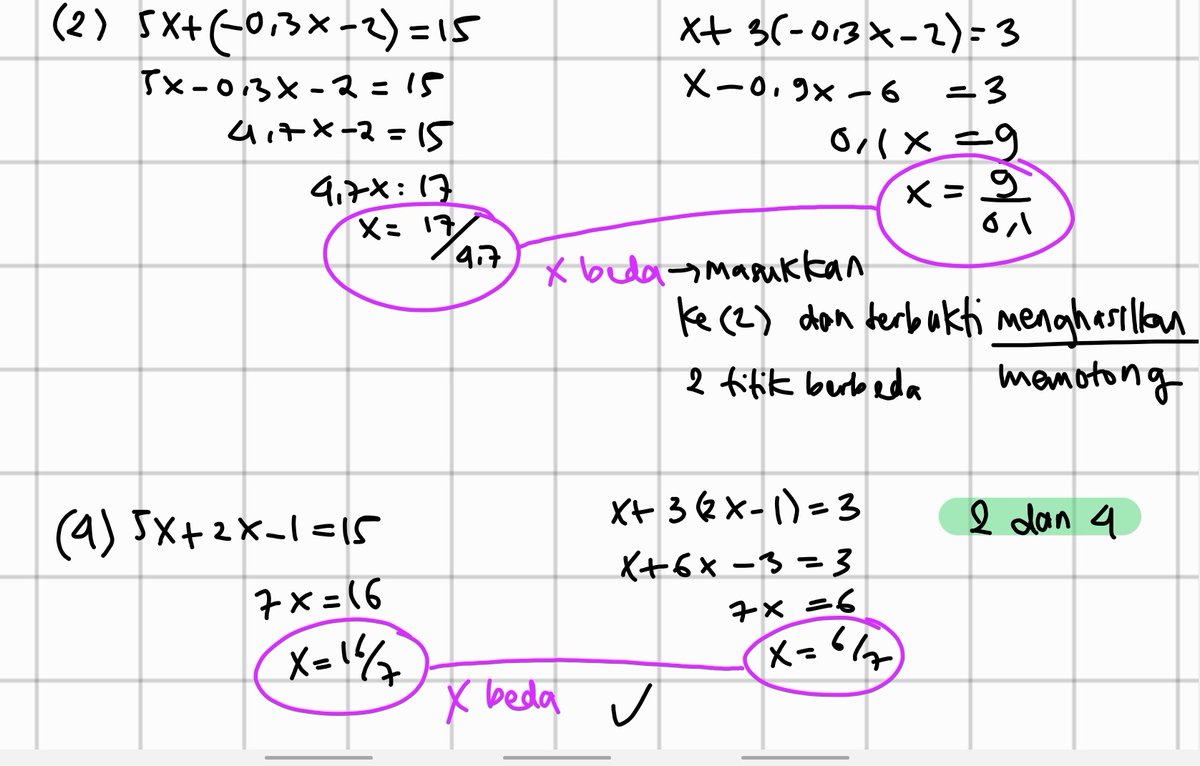 (2) 5x+(-0,3x-2)=15
5x-0,3x-2=15
4,7x-2=15
4,7x=17
x=17/4,7
x+3(-0,3x-2)=3
x-0,9x-6=3
0,1x=9
x=9/0,1
x beda → masukkan
ke (2) dan terbukti menghasilkan
2 titik berbeda memotong
(4) 5x+2x-1=15
7x=16
x=16/7
x+3(2x-1)=3
x+6x-3=3
7x=6
x=6/7
x beda ✓
2 dan 4